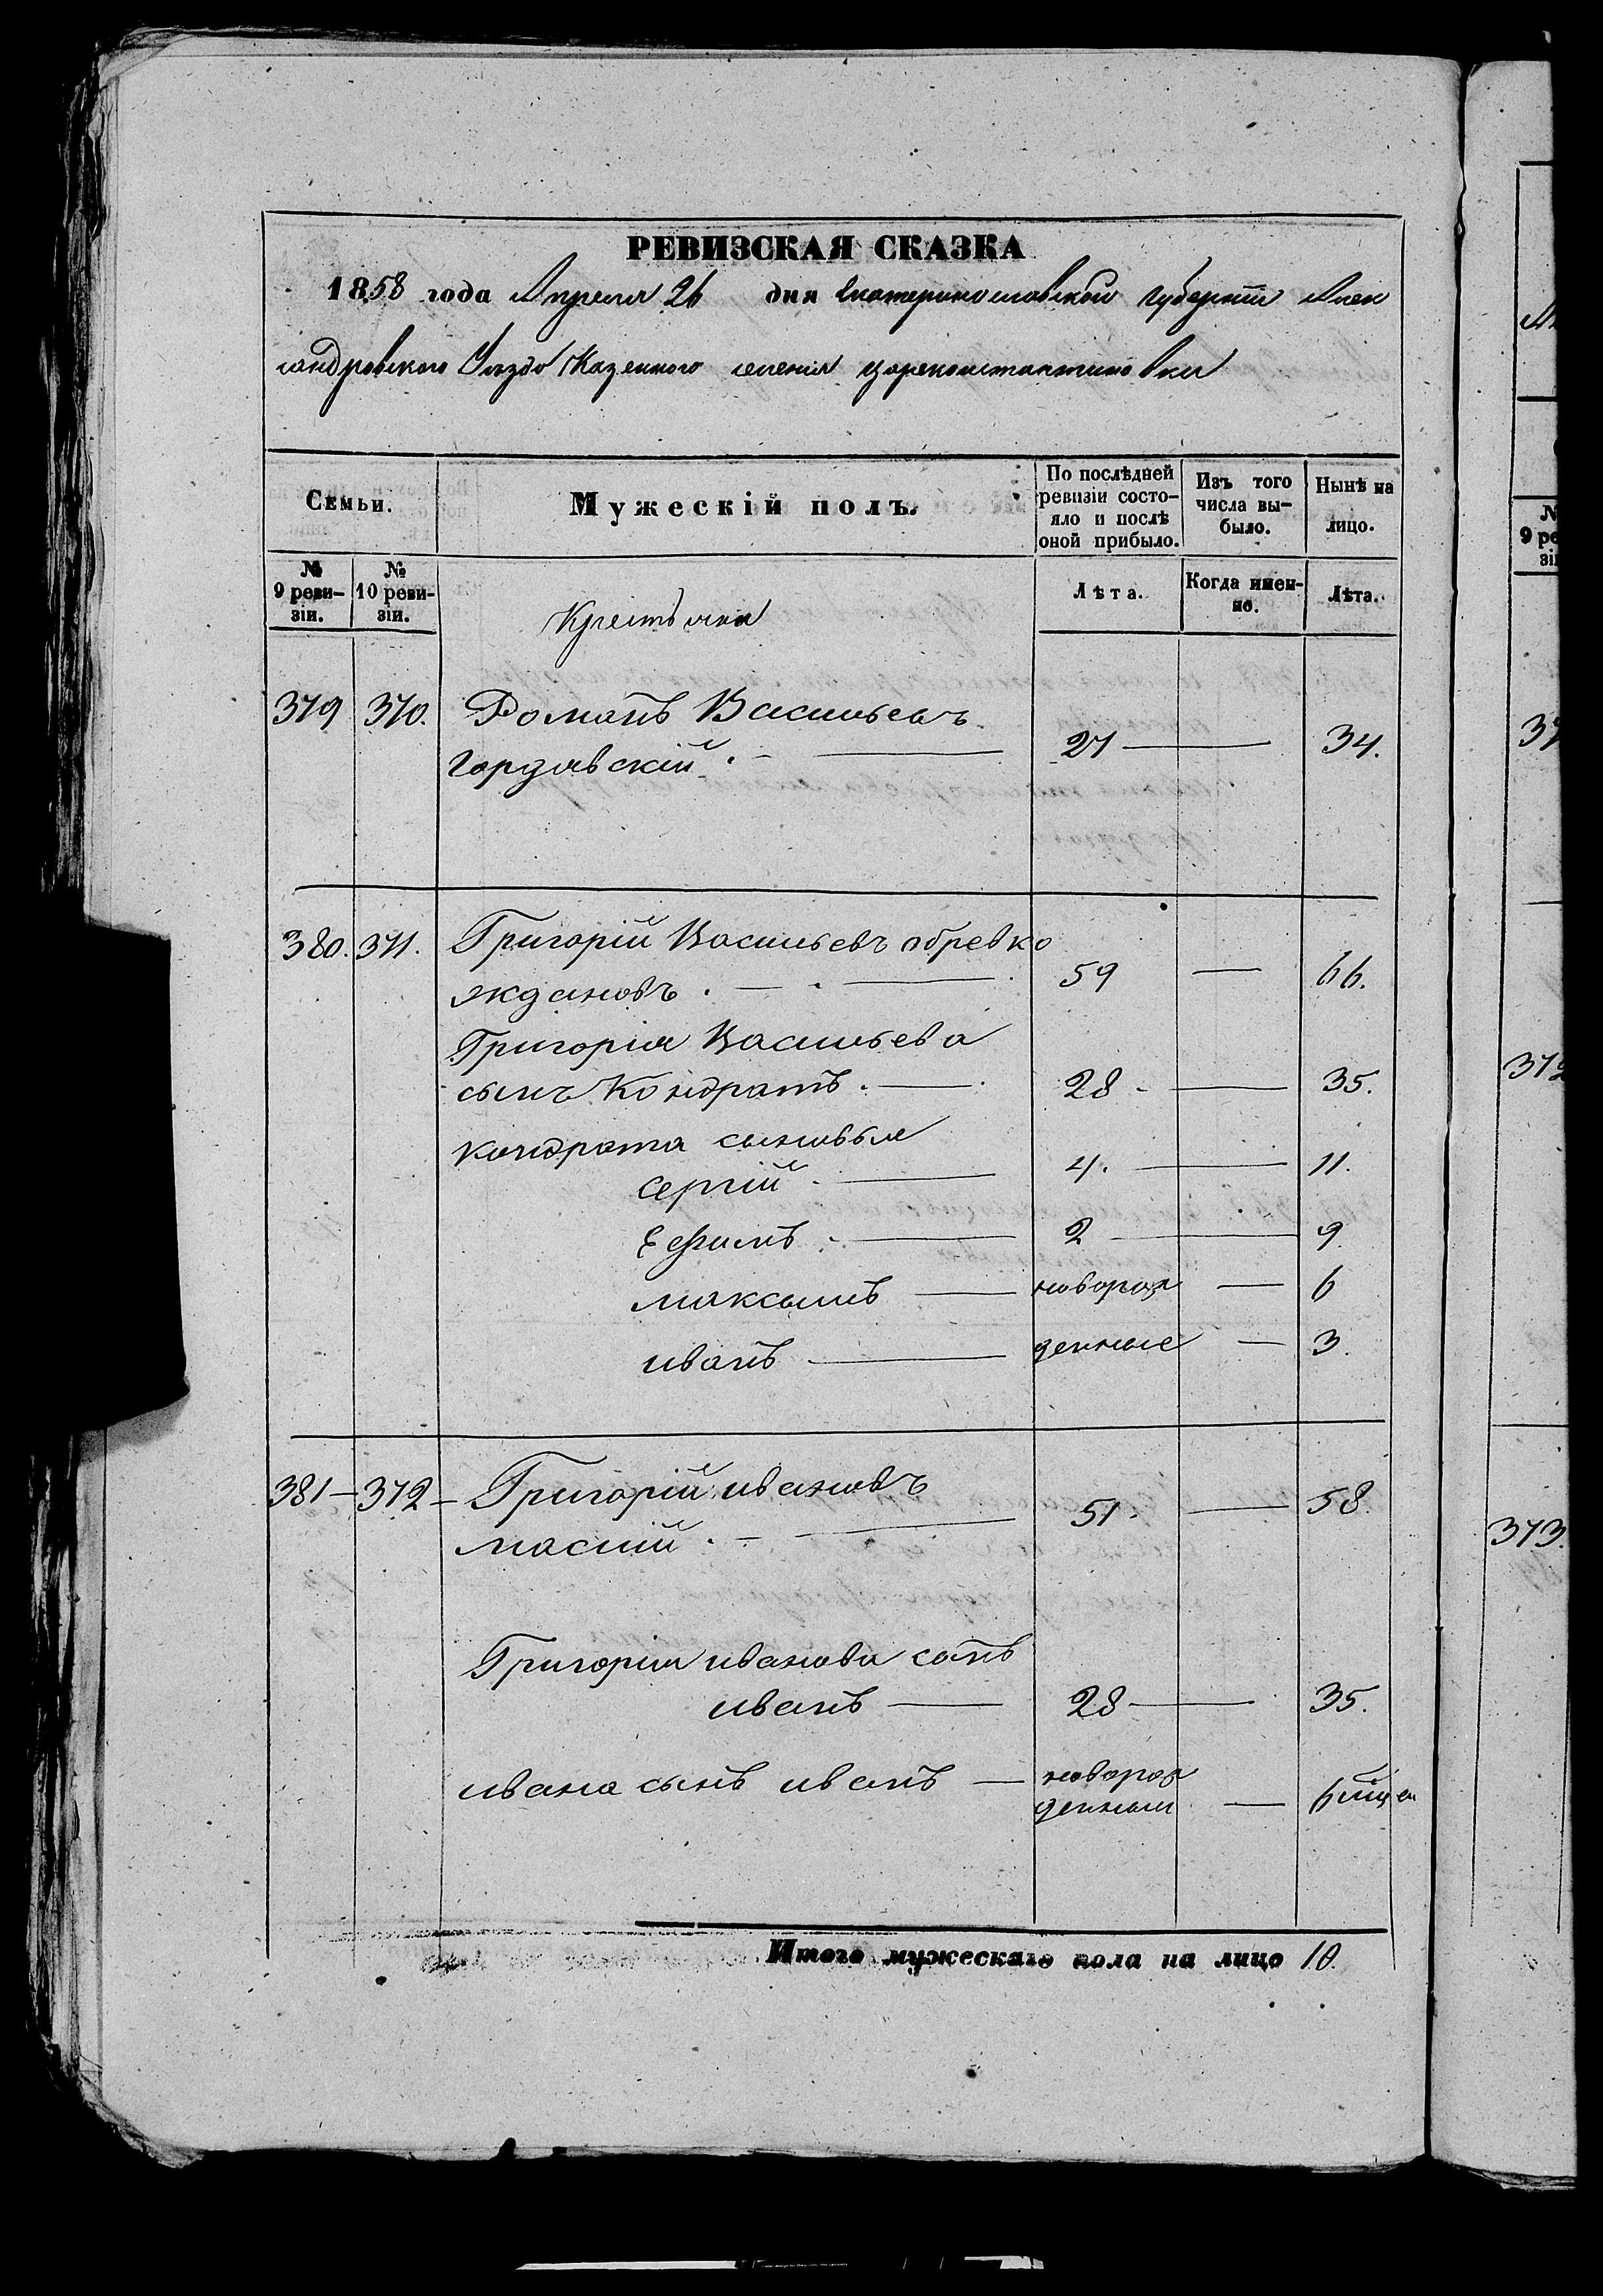 РЕВИЗСКАЯ СКАЗКА
1858 года Апреля 26 дня Екатеринославской Губернїи Алек
сандровского Уезда Казенного селения Цареконстантиновки
Семьи.
Мужескій полъ.
По послѣдней ревизіи состо-
яло и послѣ
оной прибыло.
Изъ того
числа вы-
было.
Нынѣ на
лицо.
№
9 реви-
зіи.
№
10 реви-
зіи.
Крестьяне
Лѣта.
Когда имен-
но.
Лѣта.
379 370. Романъ Васильевъ
Горзявскій. 27 34.
380. 371. Григорій Васильевъ
ждановъ. 59 66.
Григорія Васильева
сынъ Кондратъ. 28 35.
Кондрата сыновья
Сергій 4. 11.
Ефимъ 2 9.
максымъ новорож 6
иванъ денные 3.
381 372 Григорій ивановъ
масній. 51. 58.
Григорія иванова сынъ
иванъ 28 35.
ивана сынъ иванъ новорож
денный 6
Итого мужескаго пола на лицо 10.
9 ре
зі
37
372
373.